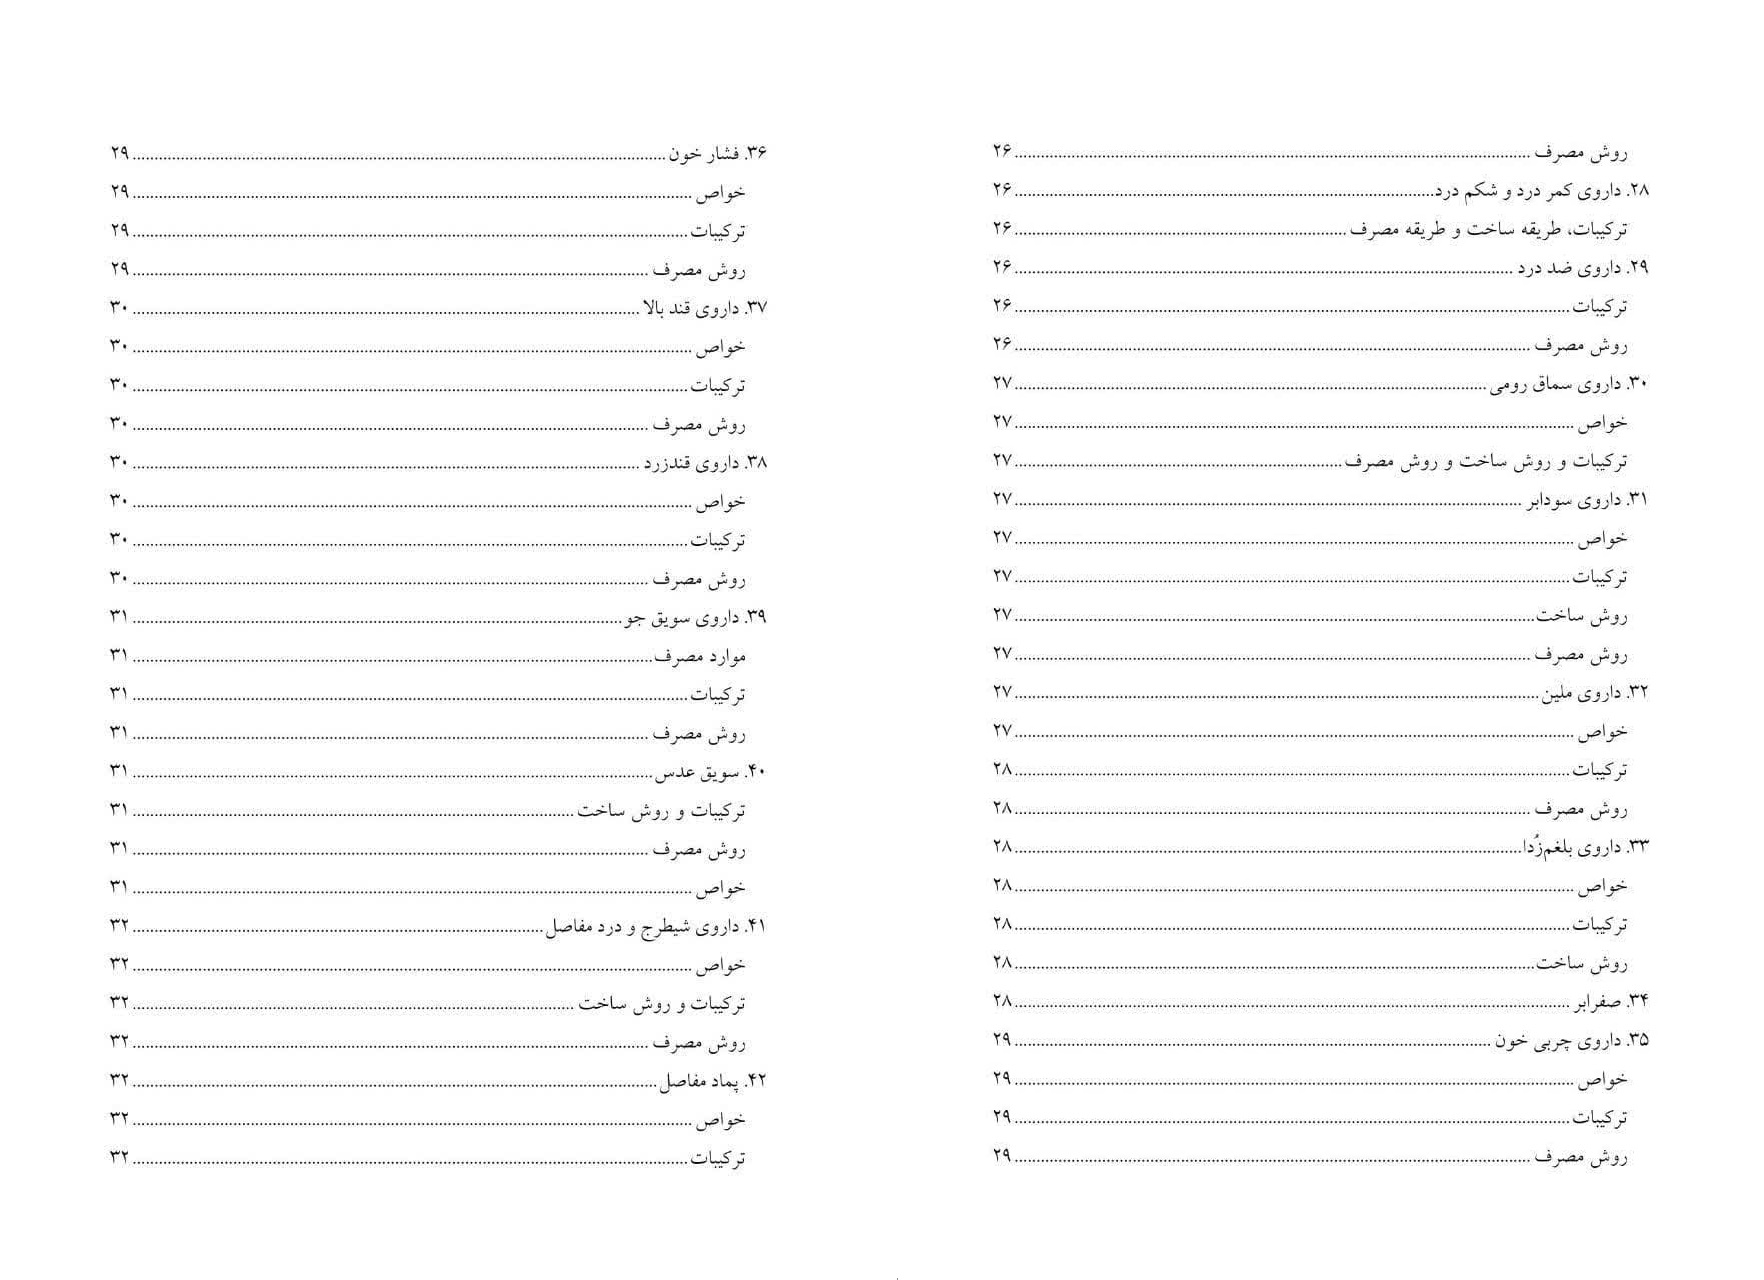 روش مصرف ........ ۲۶
۲۸. داروی کمر درد و شکم درد ........ ۲۶
ترکیبات، طریقه ساخت و طریقه مصرف ........ ۲۶
۲۹. داروی ضد درد ........ ۲۶
ترکیبات ........ ۲۶
روش مصرف ........ ۲۶
۳۰. داروی سماق رومی ........ ۲۷
خواص ........ ۲۷
ترکیبات و روش ساخت و روش مصرف ........ ۲۷
۳۱. داروی سودابر ........ ۲۷
خواص ........ ۲۷
ترکیبات ........ ۲۷
روش ساخت ........ ۲۷
روش مصرف ........ ۲۷
۳۲. داروی ملین ........ ۲۷
خواص ........ ۲۷
ترکیبات ........ ۲۸
روش مصرف ........ ۲۸
۳۳. داروی بلغم‌زُدا ........ ۲۸
خواص ........ ۲۸
ترکیبات ........ ۲۸
روش ساخت ........ ۲۸
۳۴. صفرابر ........ ۲۸
۳۵. داروی چربی خون ........ ۲۹
خواص ........ ۲۹
ترکیبات ........ ۲۹
روش مصرف ........ ۲۹
۳۶. فشار خون ........ ۲۹
خواص ........ ۲۹
ترکیبات ........ ۲۹
روش مصرف ........ ۲۹
۳۷. داروی قند بالا ........ ۳۰
خواص ........ ۳۰
ترکیبات ........ ۳۰
روش مصرف ........ ۳۰
۳۸. داروی قندزرد ........ ۳۰
خواص ........ ۳۰
ترکیبات ........ ۳۰
روش مصرف ........ ۳۰
۳۹. داروی سویق جو ........ ۳۱
موارد مصرف ........ ۳۱
ترکیبات ........ ۳۱
روش مصرف ........ ۳۱
۴۰. سویق عدس ........ ۳۱
ترکیبات و روش ساخت ........ ۳۱
روش مصرف ........ ۳۱
خواص ........ ۳۱
۴۱. داروی شیطرج و درد مفاصل ........ ۳۲
خواص ........ ۳۲
ترکیبات و روش ساخت ........ ۳۲
روش مصرف ........ ۳۲
۴۲. پماد مفاصل ........ ۳۲
خواص ........ ۳۲
ترکیبات ........ ۳۲